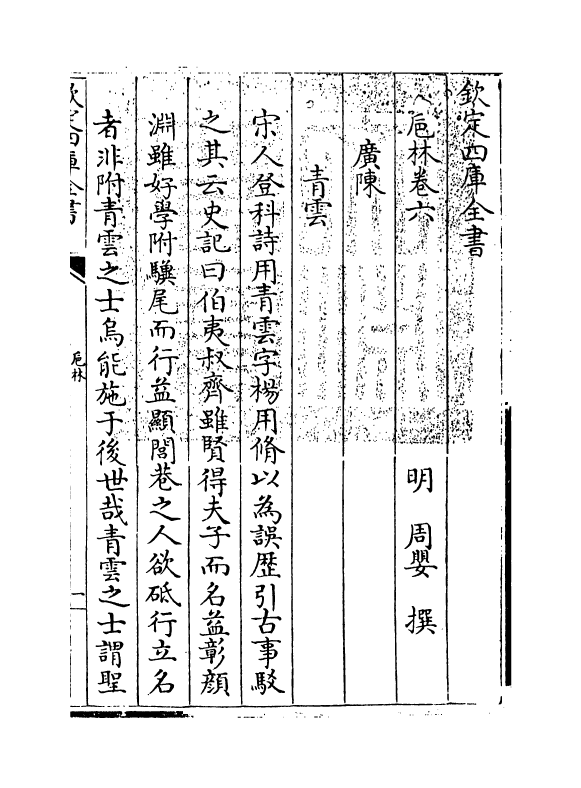 欽定四庫全書
巵林卷六
明 周嬰 撰
廣陳
青雲
宋人登科詩用青雲字楊用脩以為誤歴引古事駁
之其云史記曰伯夷叔齊雖賢得夫子而名益彰顔
淵雖好學附驥尾而行益顯閭巷之人欲砥行立名
者非附青雲之士烏能施于後世哉青雲之士謂聖
欽定四庫全書
巵林
一